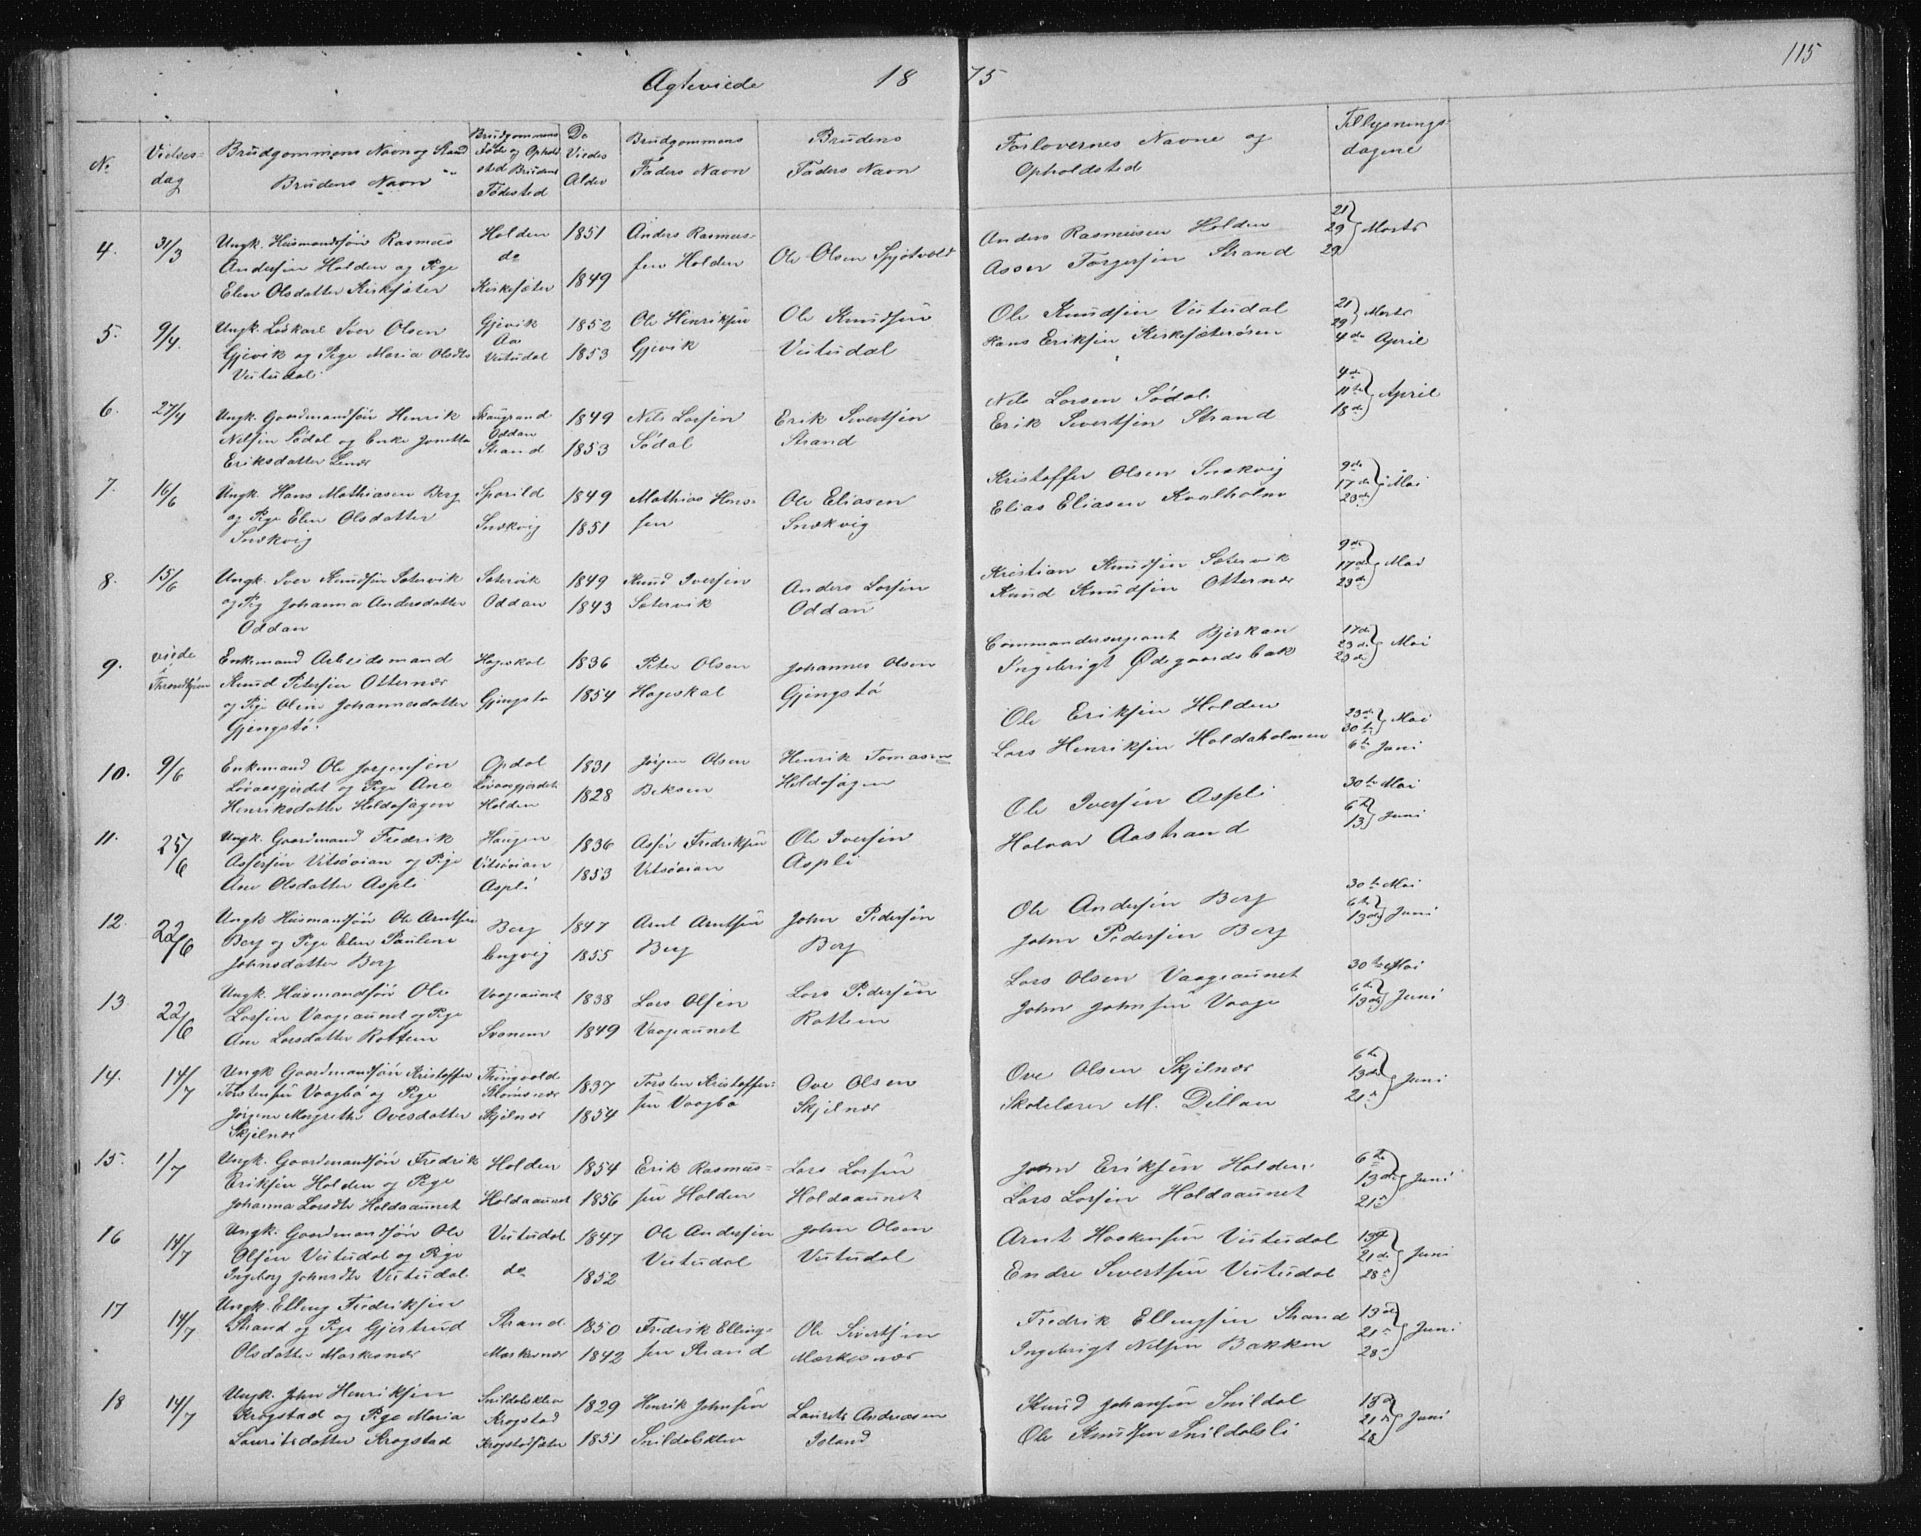 115
Agteviede 18 75
No
Vielses-
dag
Brudgommens Navn og Stand
Brudens Navn
Brudgommens
Føde og Ophold
sted Brudens
Fødested
De
Viedes
Alder
Brudgommens
Faders Navn
Brudens
Faders Navn
Forlovernes Navne og
Opholdsted
Tillysnings-
dagene
4. 31/3
Ungk. Husmandsøn Rasmus
Andersen Holden og Pige
Elen Olsdatter Kirksæter
Holden
do
Kirksæter
1851
1849
Anders Rasmus-
sen Holden
Ole Olsen Spjøtvold
Anders Rasmusen Holden
Asser Torgersen Strand
21
29 Marts
29
5. 9/4.
Ungk. Løskarl Iver Olsen
Gjevik og Pige Maria Olsdtr
Vutudal
Gjevik
Aa
Vutudal
1852
1853
Ole Henriksen
Gjevik
Ole Knudsen
Vutudal
Ole Knudsen Vutudal
Hans Eriksen Kirksæterøren
21 Marts
29
4de April
6. 27/4
Ungk. Gaardmandsøn Henrik
Nilsen Sødal og Enke Jonetta
Eriksdatter
Skaugrand
Oddan
Strand
1849
1853
Nils Larsen
Sødal
Erik Sivertsen
Strand
Nils Larsen Sødal
Erik Sivertsen Strand
4de
11te April
18de
7. 16/6
Ungk. Hans Mathiasen Berg
og Pige Elen Olsdatter
Snekvig
Sporild
Snekvig
1849
1851
Mathias Han-
sen
Ole Eliasen
Snekvig
Kristoffer Olsen Snekvig
Elias Eliasen Kvalholm
9de
17de Mai
23de
8. 15/6
Ungk. Iver Knudsen Sætervik
og Pig Johanna Andersdatter
Oddan
Sætervik
Oddan
1849
1843
Knud Iversen
Sætervik
Anders Larsen
Oddan
Kristian Knudsen Sætervik
Knud Knudsen Otternær
9de
17de Mai
23de
9. viede
i
Throndhjem
Enkemand Arbeidsmand
Knud Petersen Otternær
og Pige Oline Johannesdatter
Gjengstø
Hageskal
Gjengstø
1836
1854
Peter Olsen
Hageskal
Johannes Olsen
Gjengstø
Commandersergeant Bjerkan
Ingebrigt Ødegaardsbak
17de
23de Mai
23de
10. 9/6
Enkemand Ole Jørgensen
Løvaasgjerdet og Pige Ane
Henriksdatter Holdasagen
Opdal
Løvaasgjerdet
Holden
1831
1828
Jørgen Olsen
Beksen
Henrik Tomasen
Holdasagen
Ole Eriksen Holden
Lars Henriksen Holdaholmen
23de Mai
30te
6te Juni
11. 25/6
Ungk. Gaardmand Fredrik
Assersen Vitsøvian og Pige
Ane Olsdatter Aspli
Haugen
Vitsøvian
Aspli
1836
1853
Asser Fredriksen
Vitsøvian
Ole Iversen
Aspli
Ole Iversen Aspli
Halvar Aastrand
30te Mai
6te
13 Juni
12. 22/6
Ungk Husmandsøn Ole Arntsen
Berg og Pige Elen Pauline
Johnsdatter Berg
Berg
Engvig
1847
1855
Arnt Arntsen
Berg
John Pedersen
Berg
Ole Andersen Berg
John Pedersen Berg
30te Mai
6te
13de Juni
13 22/6
Ungk. Husmandsøn Ole
Larsen Vaageaunet og Pige
Ane Larsdatter Rottem
Vaageaunet
Svanem
1838
1849
Lars Olsen
Vaageaunet
Lars Pedersen
Rottem
Lars Olsen Vaageaunet
John Johnsen Vaage
30te Mai
6te
13de Juni
14. 14/7
Ungk Gaardmandsøn Kristoffer
Torstensen Vaagbø og Pige
Jørgine Magrethe Ovesdatter
Skjelnær
Thingvolds
Skjelnær
1837
1854
Torsten Kristoffer-
sen Vaagbø
Ove Olsen
Skjelnær
Ove Olsen Skjelnær
Skolelærer M. Dillan
6te
13de Juni
21
15. 1/7
Ungk. Gaardmandsøn Fredrik
Eriksen Holden og Pige
Johanna Larsdtr Holdaaunet
Holden
Holdaaunet
1854
1856
Erik Rasmus-
sen Holden
Lars Larsen
Holdaaunet
John Eriksen Holden
Lars Larsen Holdaaunet
6te
13de Juni
21
16 14/7
Ungk. Gaardmandsøn Ole
Olsen Vutudal og Pige
Ingeborg Johnsdtr Vutudal
Vutudal
do
1847
1852
Ole Andersen
Vutudal
John Olsen
Vutudal
Arnt Haakensen Vutudal
Endre Sivertsen Vutudal
13de
21de Juni
28
17 14/7
Ungk. Elling Fredriksen
Strand og Pige Gjertrud
Olsdatter Markesnær
Strand
Markesnær
1850
1842
Fredrik Elling-
sen Strand
Ole Sivertsen
Markesnær
Fredrik Ellingsen Strand
Ingebrigt Nilsen Bakken
13de
21 Juni
28
18 14/7
Ungk. John Henriksen
Krogstad og Pige Maria
Lauritsdatter Krogstad
Snildalsklev
Krogstad
Krogstadsæter
1829
1851
Henrik Johnsen
Snildalsklev
Laurits Andreasen
Island
Knud Johansen Snildal
Ole Knudsen Snildalsli
13de
21de Juni
28